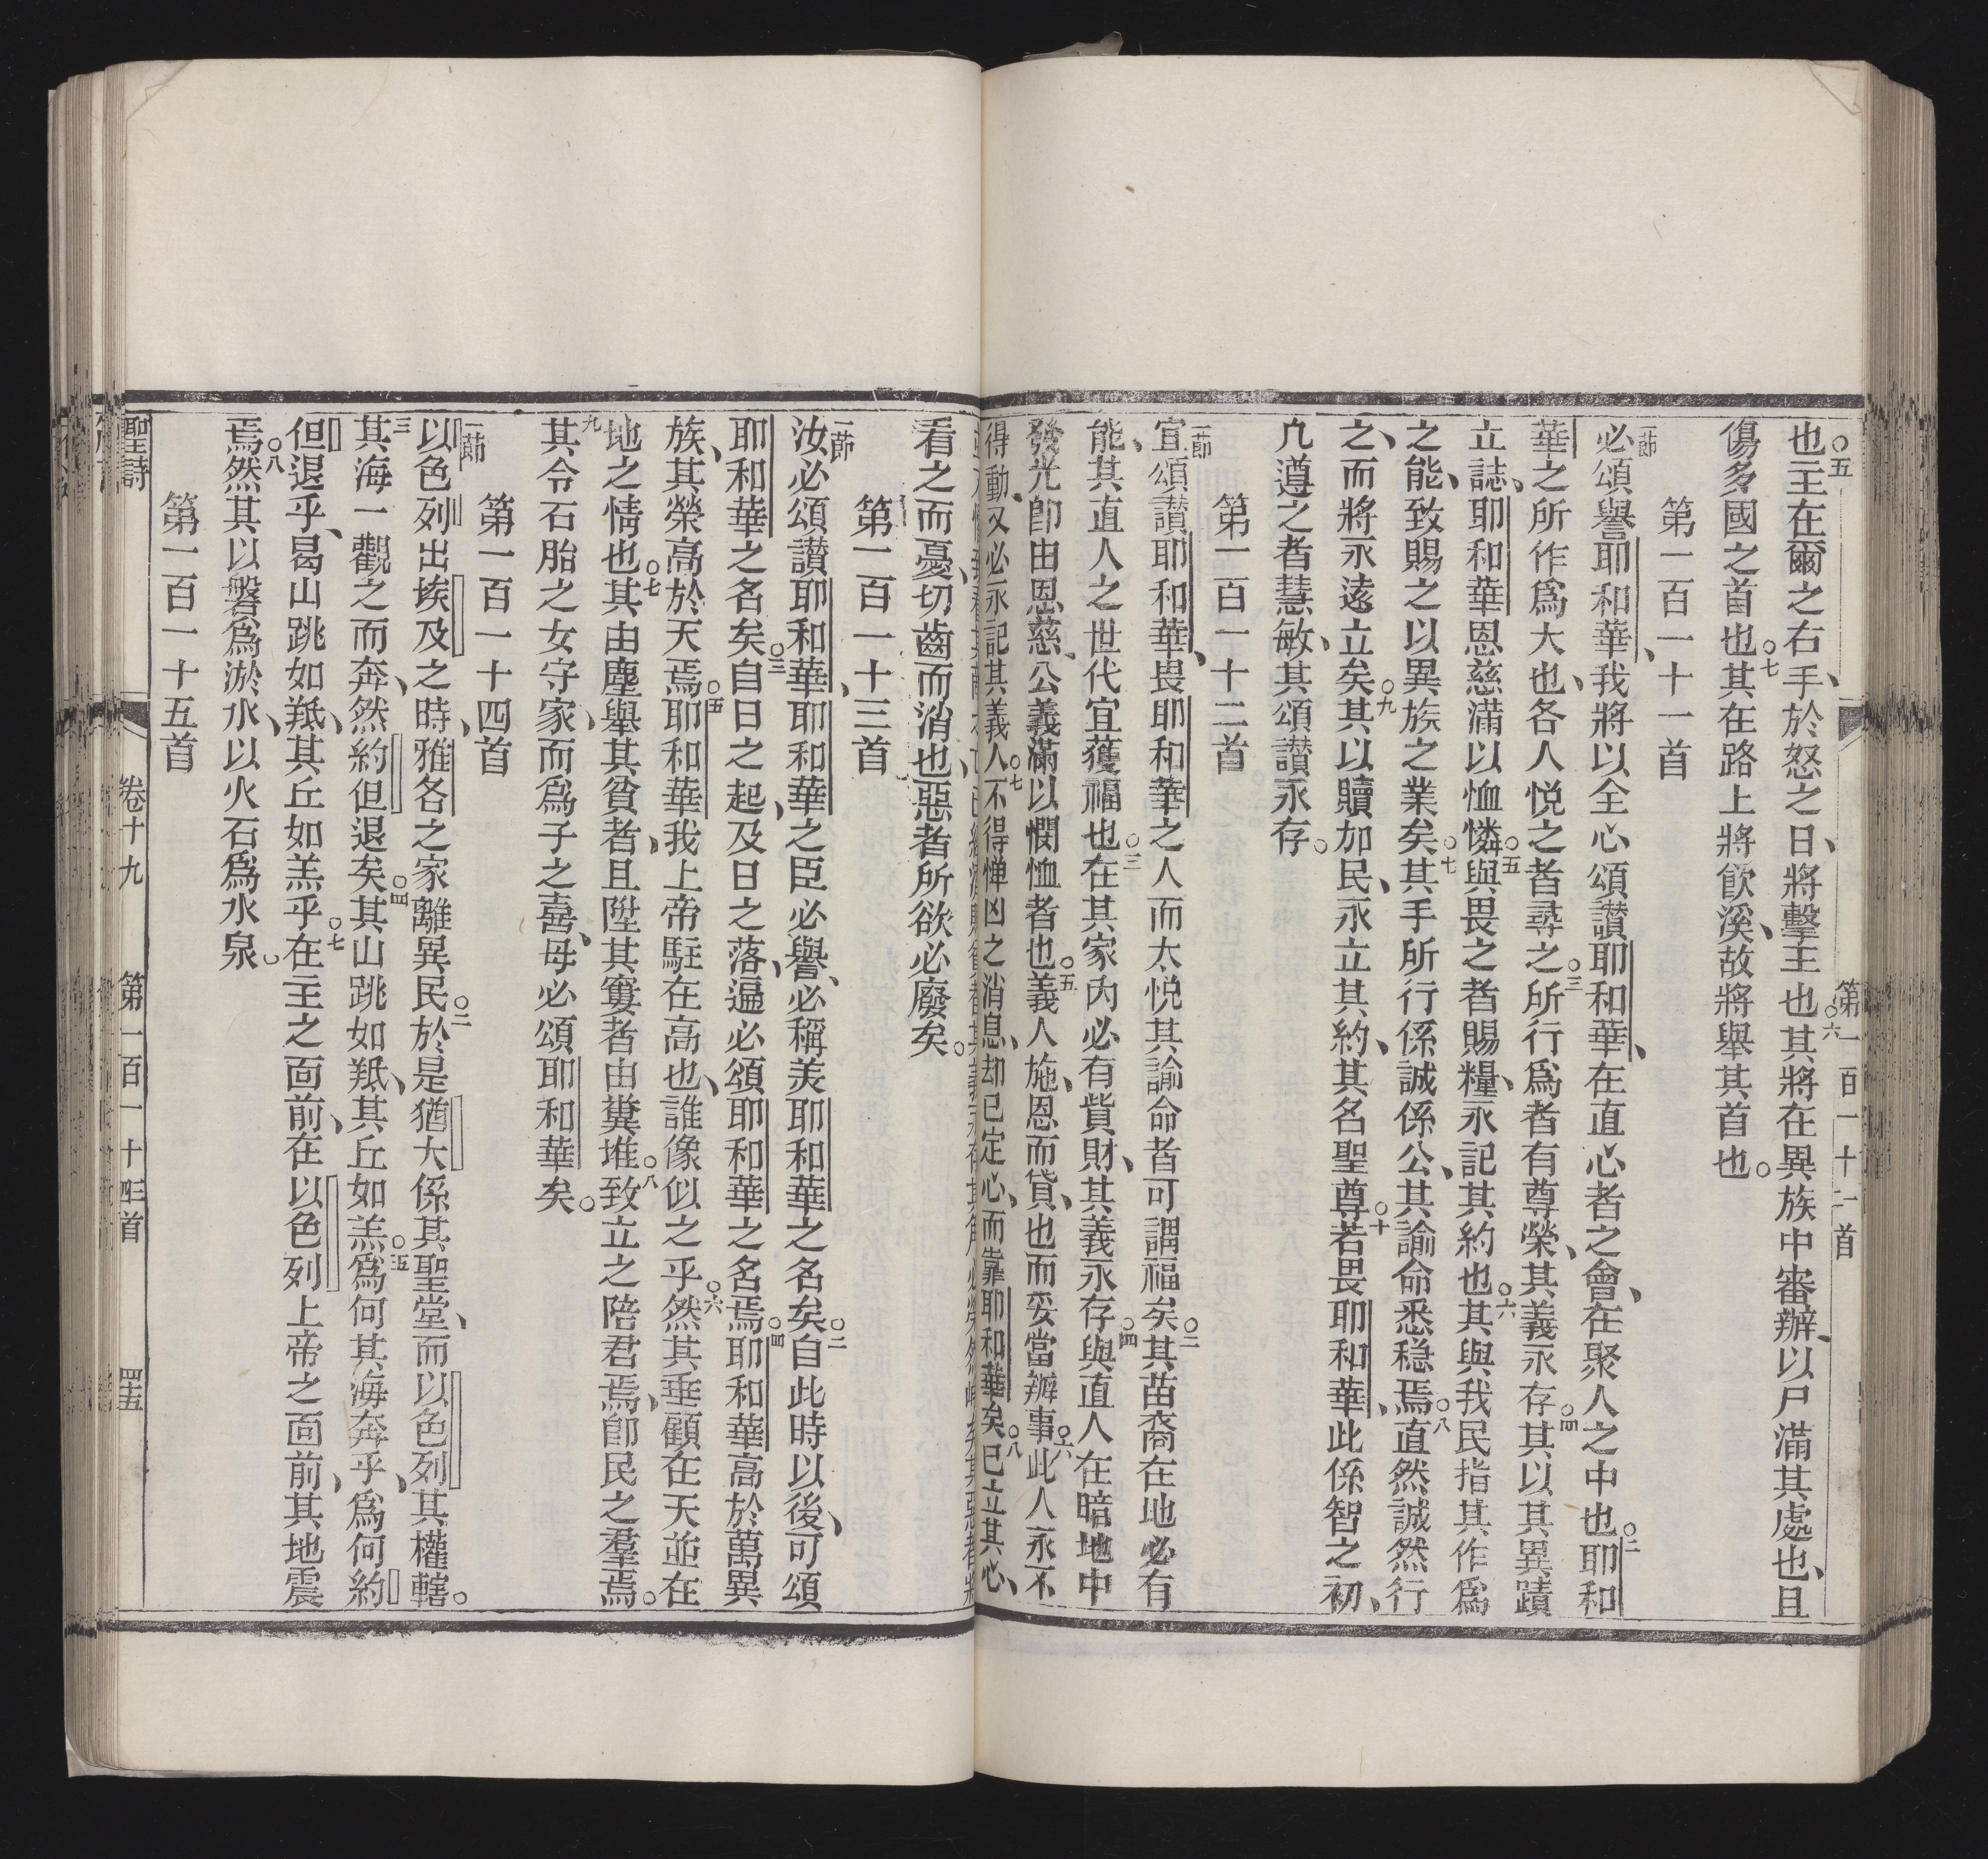 第一百一十二首
也○五主在爾之右手、於怒之日、將擊王也○六其將在異族中審辦、以尸滿其處也、且
傷多國之首也○七其在路上將飲溪、故將舉其首也○
第一百一十一首
一節必頌譽耶和華、我將以全心頌讃耶和華、在直心者之會、在聚人之中也○二耶和
華之所作爲大也、各人悅之者尋之○三所行爲者有尊榮、其義永存○四其以其異蹟
立誌、耶和華恩慈滿以恤憐○五與畏之者賜糧、永記其約也○六其與我民指其作爲
之能、致賜之以異族之業矣○七其手所行係誠係公、其諭命悉穩焉○八直然誠然行
之、而將永遠立矣○九其以贖加民、永立其約、其名聖尊○十若畏耶和華、此係智之初、
凡遵之者慧敏、其頌讃永存○
第一百一十二首
一節宜頌讃耶和華、畏耶和華之人而太悅其諭命者可謂福矣○二其苗裔在地必有
能、其直人之世代宜獲福也○三在其家內必有貲財、其義永存○四與直人在暗地中
發光卽由恩慈、公義滿以憫恤者也○五義人施、恩而貸、也而妥當辦事○六此人永不
得動、又必永記其義人○七不得憚凶之消息、却已定心、而靠耶和華矣○八已立其心、
看之而憂、切齒而消也、惡者所欲必廢矣○
第一百一十三首
一節汝必頌讃耶和華、耶和華之臣必譽、必稱羙耶和華之名矣○二自此時以後、可頌
耶和華之名矣○三自日之起、及日之落、遍必頌耶和華之名焉○四耶和華高於萬異
族、其榮高於天焉○五耶和華我上帝駐在高也、誰像似之乎○六然其垂顧在天並在
地之情也○七其由塵舉其貧者、且陞其窶者由糞堆○八致立之陪君焉、卽民之羣焉○
九其令石胎之女守家、而爲子之喜、母必頌耶和華矣○
第一百一十四首
一節以色列出埃及之時、雅各之家離異民○二於是猶大係其聖堂、而以色列其權轄○
三其海一觀之而奔、然約但退矣○四其山跳如羝、其丘如羔○五爲何其海奔乎、爲何約
但退乎、曷山跳如羝、其丘如羔乎○七在主之靣前、在以色列上帝之靣前、其地震
焉○八然其以磐爲淤水、以火石爲水泉○
第一百一十五首
聖詩　卷十九　第一百一十四首　四十五